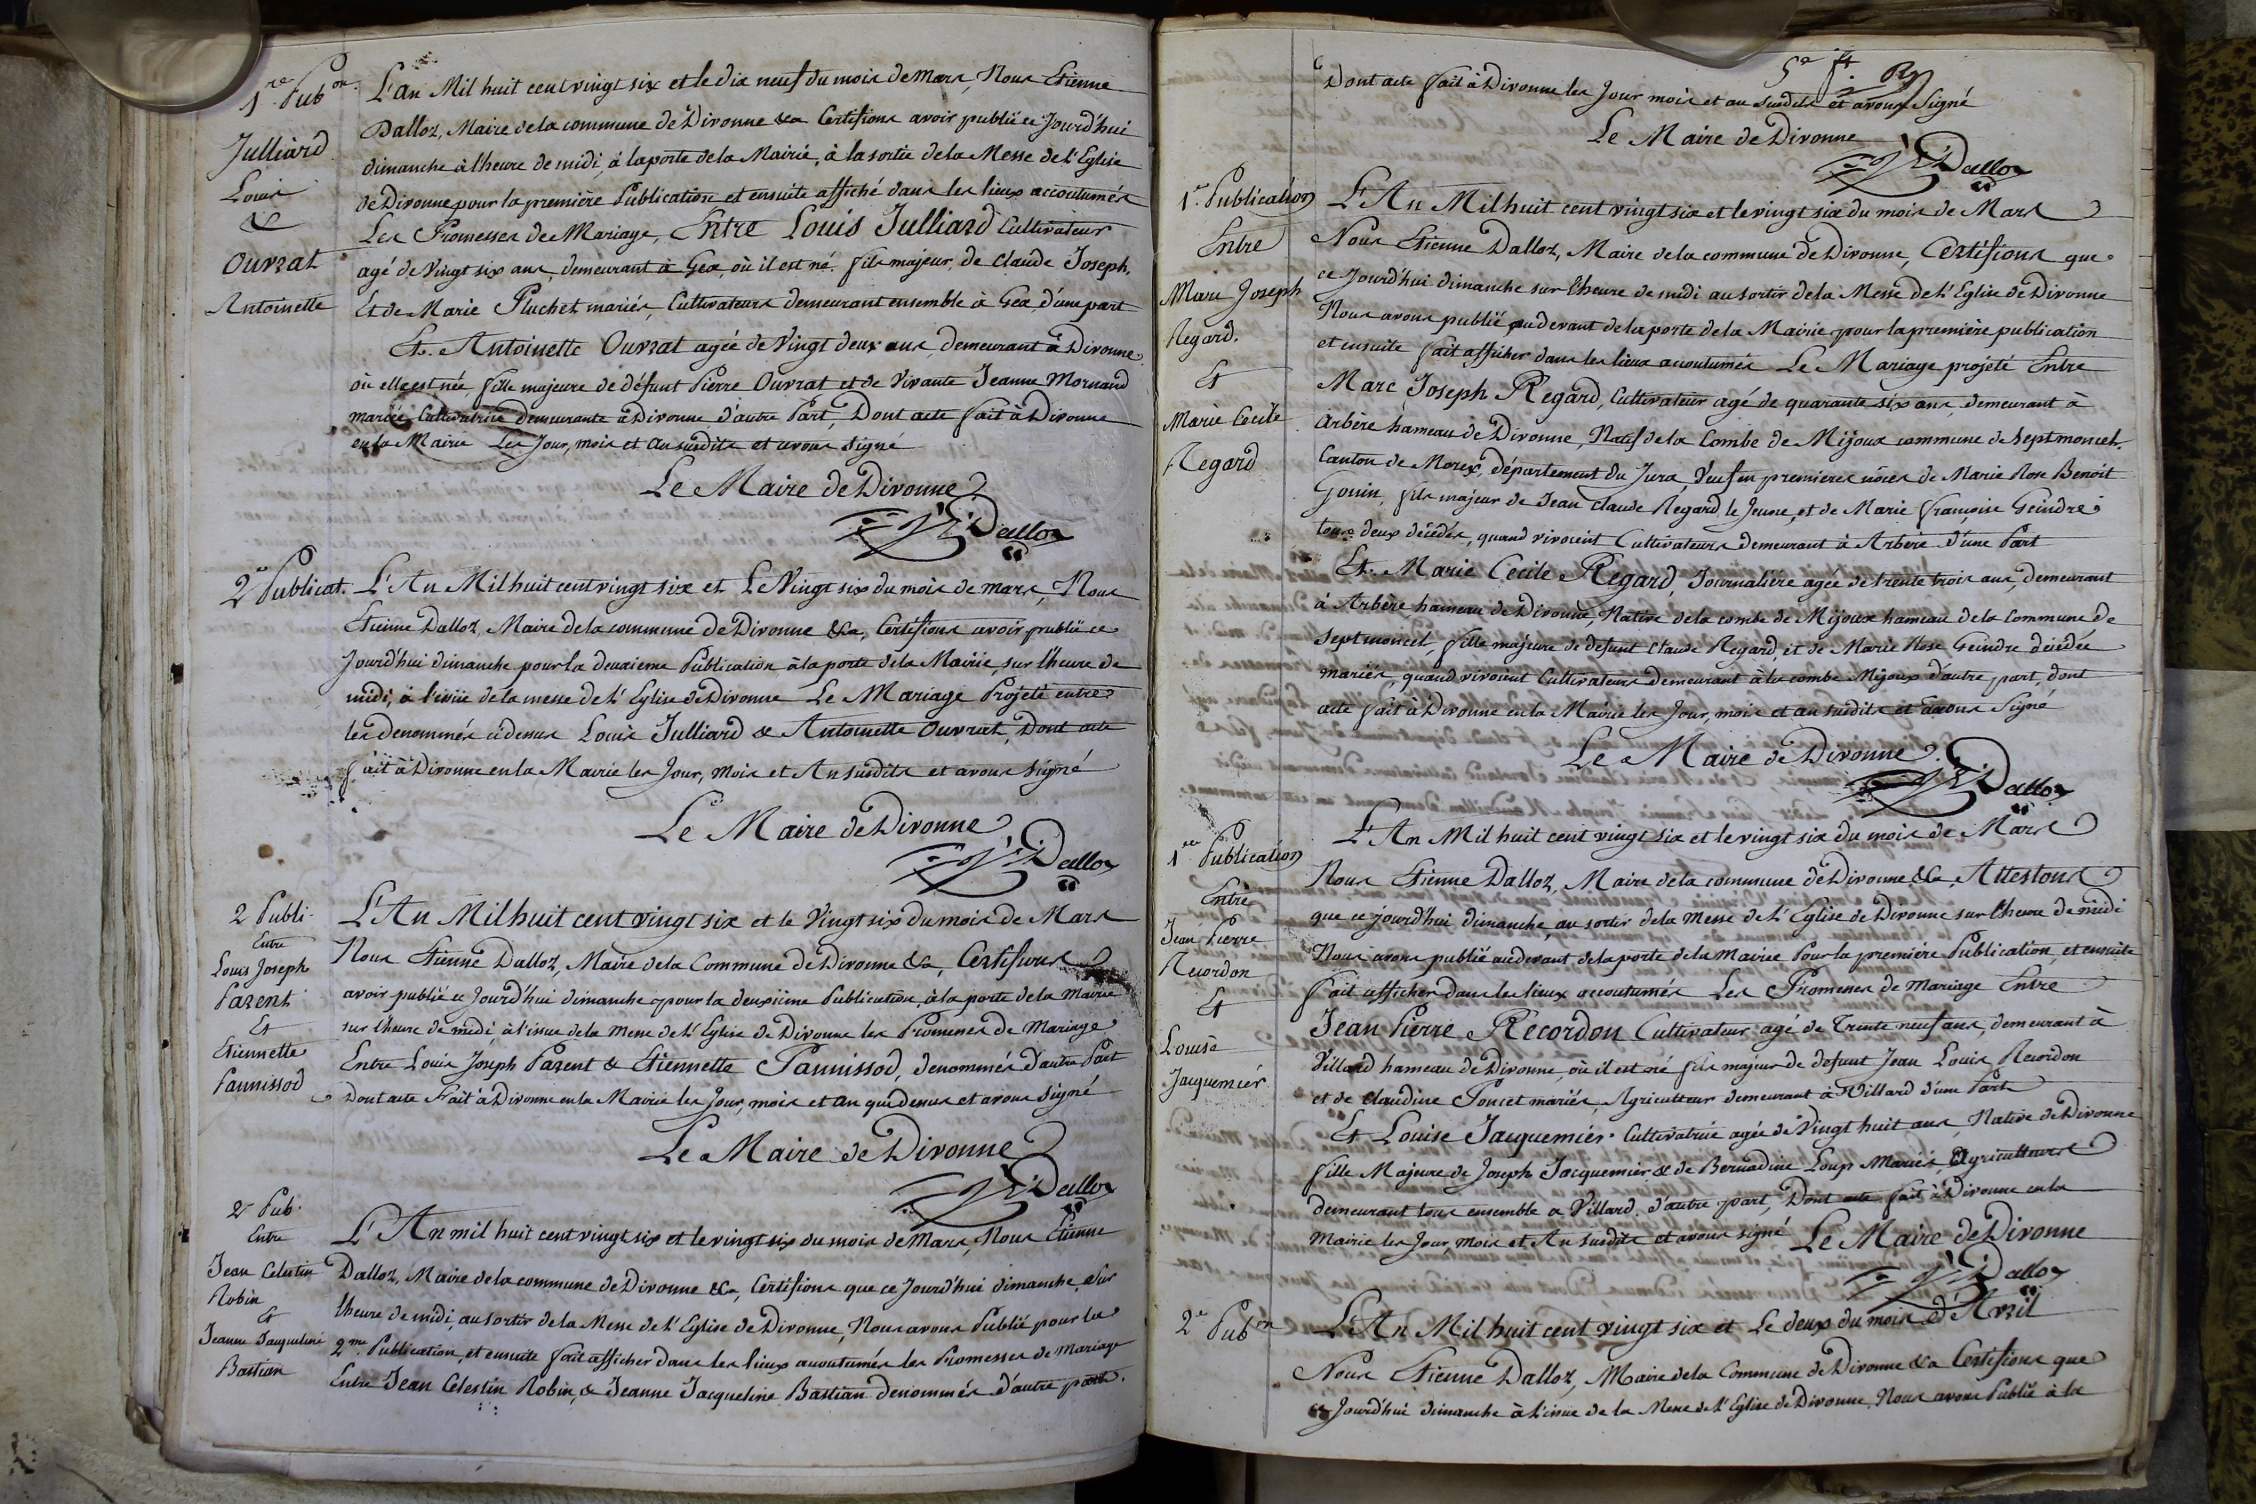 1.re Pub.on
Julliard
Louis
&
Ouvrat
Antoinette
L'an Mil huit cent vingt six et le dix neuf du mois de Mars, Nous Etienne
Dalloz, Maire de la commune de Divonne &a Certifions avoir publié ce Jourd'hui
dimanche à l'heure de midi, à la porte de la Mairie, à la sortie de la Messe de l'Eglise
de Divonne pour la première Publication et ensuite affiché dans les lieux accoutumés
Les Promesses de Mariage, Entre Louis Julliard Cultivateur
agé de vingt six ans, demeurant à Gex, où il est né. fils majeur, de Claude Joseph,
Et de Marie Pluchet mariés, Cultivateurs demeurant ensemble à Gex, d'une part
Et. Antoinette Ouvrat agée de Vingt deux ans, demeurant à Divonne
où elle est née, fille majeure de défunt Pierre Ouvrat et de Vivante Jeanne Mornand
mariée Cultivatrice demeurante à Divonne d'autre Part, Dont acte fait à Divonne
en la Mairie Les Jour, mois et an susdits et avons signé
Le Maire de Divonne
Dalloz
2.e Publicat.
L'An Mil huit cent vingt six et Le Vingt six du mois de mars, Nous
Etienne Dalloz, Maire de la commune de Divonne &a, Certifions avoir publié ce
Jourd'hui dimanche pour la deuxieme Publication à la porte de la Mairie, sur l'heure de
midi, à l'issüe de la messe de l'Eglise de Divonne Le Mariage Projeté entre
les denommés ci dessus Louis Julliard & Antoinette Ouvrat, Dont acte
fait à Divonne en la Mairie les Jour, Mois et An susdits et avons signé
Le Maire de Divonne
Dalloz
2 Publi.
Entre
Louis Joseph
Parent
Et
Etiennette
Pannissod
L'An Mil huit cent vingt six et le Vingt six du mois de Mars
Nous Etienne Dalloz, Maire de la Commune de Divonne &a, Certifions
avoir publié ce Jourd'hui dimanche pour la deuxiême Publication, à la porte de la Mairie
sur l'heure de midi, à l'issue de la messe de l'Eglise de Divonne les Promesses de Mariage
Entre Louis Joseph Parent & Etiennette Pannissod, denommés d'autre Part
Dont acte Fait à Divonne en la Mairie les Jour, mois et an que dessus et avons signé
Le Maire de Divonne
Dalloz
2.e Pub.
Entre
Jean Celestin
Robin
Et
Jeanne Jacqueline
Bastian
L'An mil huit cent vingt six et le vingt six du mois de Mars, Nous Etienne
Dalloz, Maire de la commune de Divonne &a, Certifions que ce Jourd'hui dimanche, sur
l'heure de midi, au sortir de la Messe de l'Eglise de Divonne, Nous avons Publié pour la
2.me Publication, et ensuite fait afficher dans les lieux accoutumés les Promesses de Mariage
Entre Jean Celestin Robin, & Jeanne Jacqueline Bastian denommés d'autre part.
Dont acte fait à Divonne les Jour mois et an susdits et avons Signé
Le Maire de Divonne
Dalloz
1.e Publication
Entre
Marc Joseph
Regard.
Et
Marie Cecile
Regard
L'An Mil huit cent vingt six et le vingt six du mois de Mars
Nous Etienne Dalloz, Maire de la commune de Divonne, Certifions que
ce Jourd'hui dimanche sur l'heure de midi au sortir de la Messe de l'Eglise de Divonne
Nous avons publié au devant de la porte de la Mairie pour la première publication
et ensuite fait afficher dans les lieux accoutumés Le Mariage projeté Entre
Marc Joseph Regard, Cultivateur agé de quarante six ans, demeurant à
Arbère hameau de Divonne, Natif de la Combe de Mijoux commune de Septmoncel.
Canton de Morez, département du Jura, Veuf en premieres nôces de Marie Rose Benoit
Gonin, fils majeur de Jean Claude Regard, le Jeune, et de Marie françoise Geindre
tous deux décédés, quand vivoient Cultivateurs demeurant à Arbère d'une Part
Et. Marie Cecile Regard, Journalière agée de trente trois ans, demeurant
à Arbère hameau de Divonne, Native de la combe de Mijoux hameau de la Commune de
Septmoncel, fille majeure de défunt Claude Regard, et de Marie Rose Geindre décédée
mariés, quand vivoient Cultivateurs demeurant à la combe Mijoux d'autre part, dont
acte fait à Divonne en la Mairie les Jour, mois et an susdits et avons Signé
Le Maire de Divonne.
Dalloz
1.ere Publication
Entre
Jean Pierre
Recordon
Et
Louise
Jacquemier
L'An Mil huit cent vingt six et le vingt six du mois de Mars
Nous Etienne Dalloz, Maire de la commune de Divonne &a, Attestons
que ce jourd'hui dimanche, au sortir de la Messe de l'Eglise de Divonne sur l'heure de midi
Nous avons publié au devant de la porte de la Mairie Pour la première Publication, et ensuite
fait afficher dans les lieux accoutumés Les Promesses de Mariage Entre
Jean Pierre Recordon Cultivateur agé de Trente neuf ans, demeurant à
Villard hameau de Divonne, où il est né fils majeur de defunt Jean Louis Recordon
et de Claudine Poncet mariés, Agriculteur demeurant à Villard d'une Part
Et Louise Jacquemier Cultivatrice agée de Vingt huit ans, Native de Divonne
fille Majeure de Joseph Jacquemier & de Bernadine Loup Mariés, Agriculteurs
demeurant tous ensemble à Villard, d'autre part, Dont acte fait à Divonne en la
Mairie les Jour, mois et An susdits et avons signé Le Maire de Divonne
Dalloz
2.e Pub.on
L'An Mil huit cent vingt six et Le deux du mois d'Avril
Nous Etienne Dalloz, Maire de la Commune de Divonne &a Certifions que
ce Jourd'hui dimanche à l'issüe de la Messe de l'Eglise de Divonne, Nous avons Publié à la